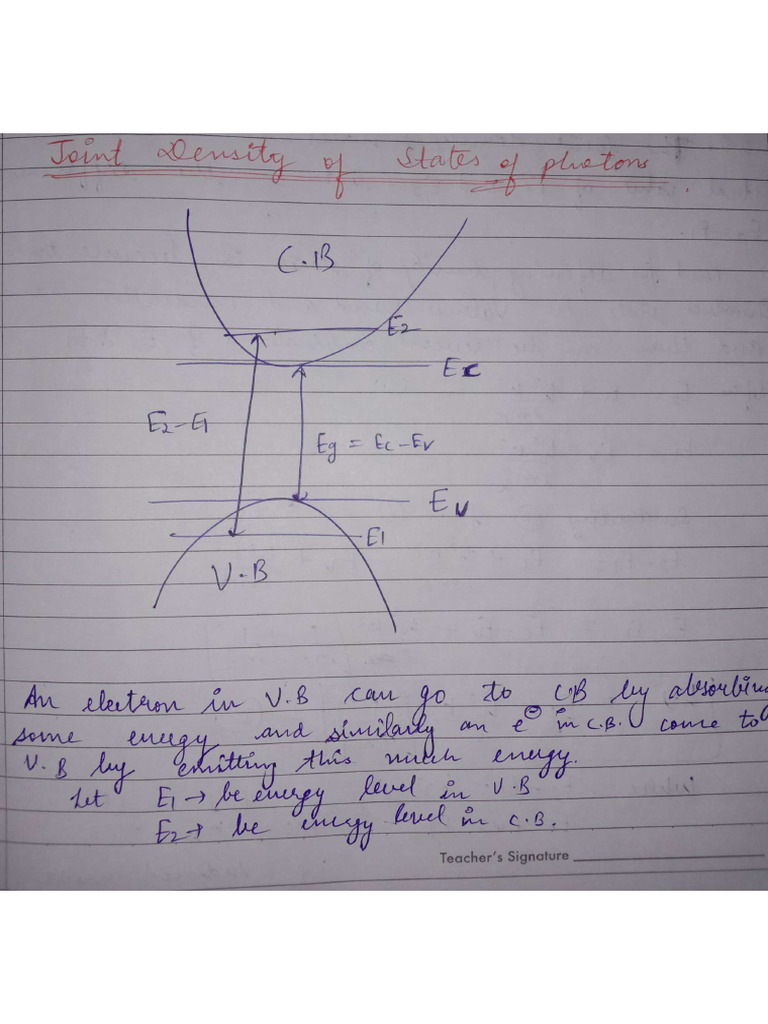 Joint Density of States of photons
C.B
E2
Ec
E2-E1
Eg = Ec-Ev
Ev
E1
V.B
An electron in V.B can go to C.B by absorbing
some energy and similarly an e⊖ in C.B. come to
V.B by emitting this much energy.
Let E1 → be energy level in V.B
E2 → be energy level in C.B.
Teacher's Signature